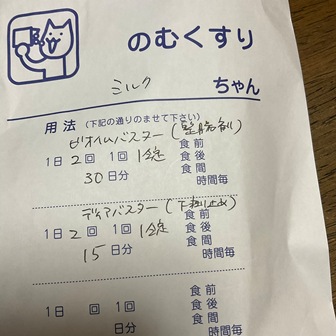 のむくすり
ミルク ちゃん
用法 (下記の通りのませて下さい)
ビオイムバスター (整腸剤)
1日 2 回 1回 1錠 食前
食後
30日分 食間
時間毎
ディアバスター (下痢止め)
食前
1日 2 回 1回 1錠 食後
15日分 食間
時間毎
食前
1日 回 1回 食後
日分 食間
時間毎